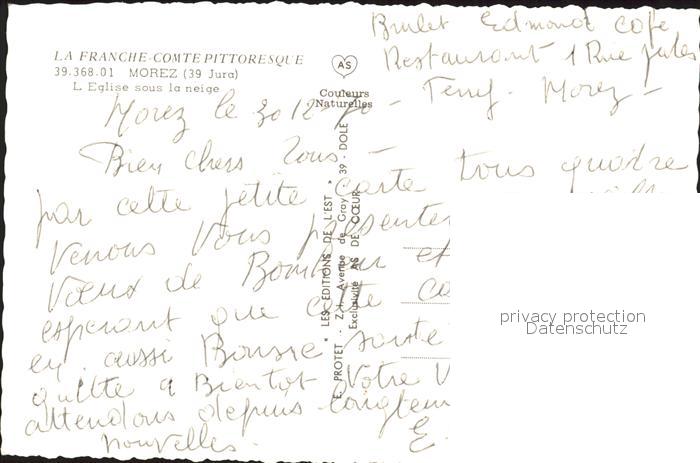 Brulet Edmond Cafe
Restaurant 1 Rue Jules
Ferry - Morez -
LA FRANCHE-COMTE PITTORESQUE
39.368.01 MOREZ (39 Jura)
L Eglise sous la neige
AS
Couleurs
Naturelles
Morez le 30 12 70 -
Bien chers Tous -
par cette petite carte tous quadre
Venous Vous présenter
Voeux de Bonheur et
esperant que cette ca
en aussi Bonne santé
quitte a Bientot Votre V
attendons depuis longtem
nouvelles.
E.
* LES EDITIONS DE L'EST *
E. PROTET - Z.I. Avenue de Gray - 39 - DOLE
Exclusivité AS DE CŒUR
privacy protection
Datenschutz